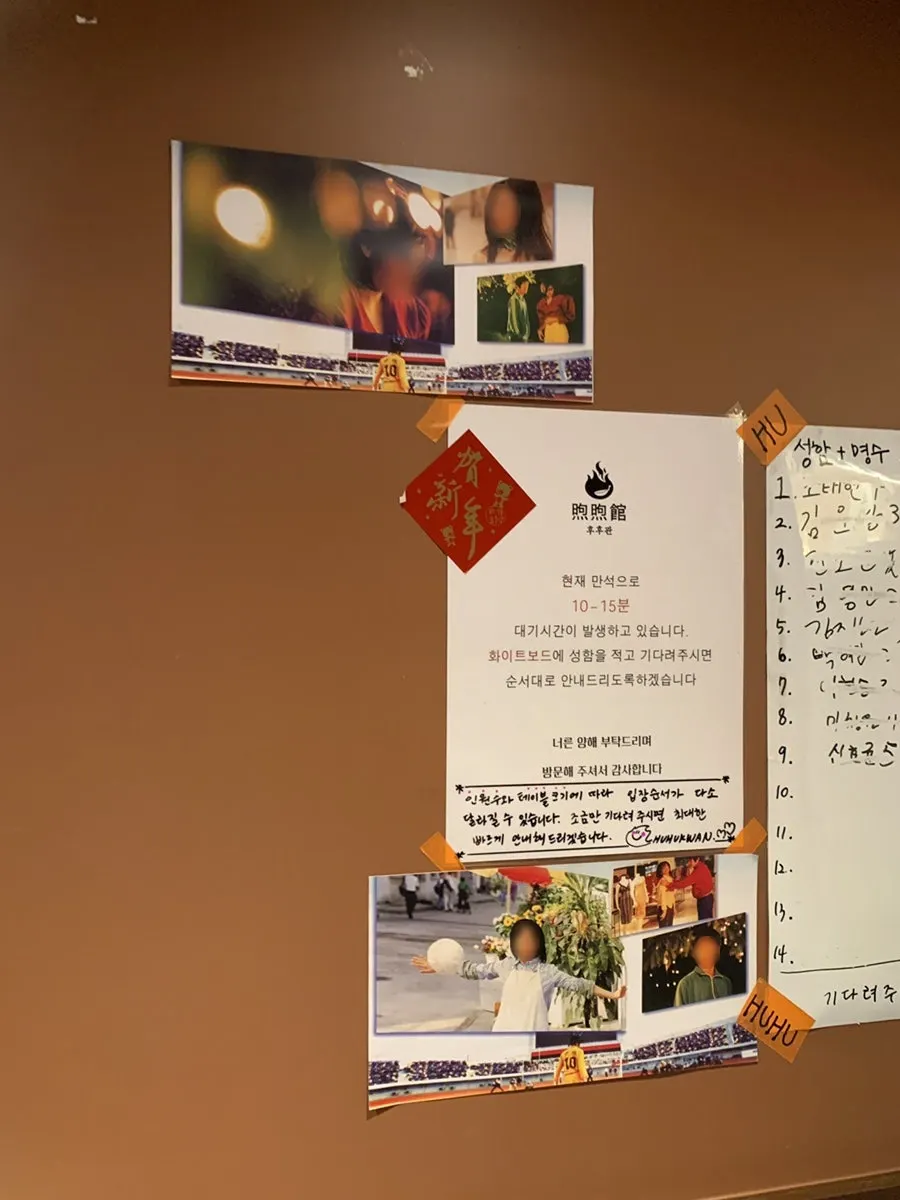 10
HU
贺
新
年
煦煦館
후후관
현재 만석으로
10-15분
대기시간이 발생하고 있습니다.
화이트보드에 성함을 적고 기다려주시면
순서대로 안내드리도록하겠습니다
너른 양해 부탁드리며
방문해 주셔서 감사합니다
인원수와 테이블 크기에 따라 입장순서가 다소
달라질 수 있습니다. 조금만 기다려 주시면 최대한
빠르게 안내해 드리겠습니다. HUHUKWAN.
성함 + 명수
1.
2. 김
3.
4. 김
5.
6.
7.
8.
9.
10.
11.
12.
13.
14.
기다려주
HUHU
10